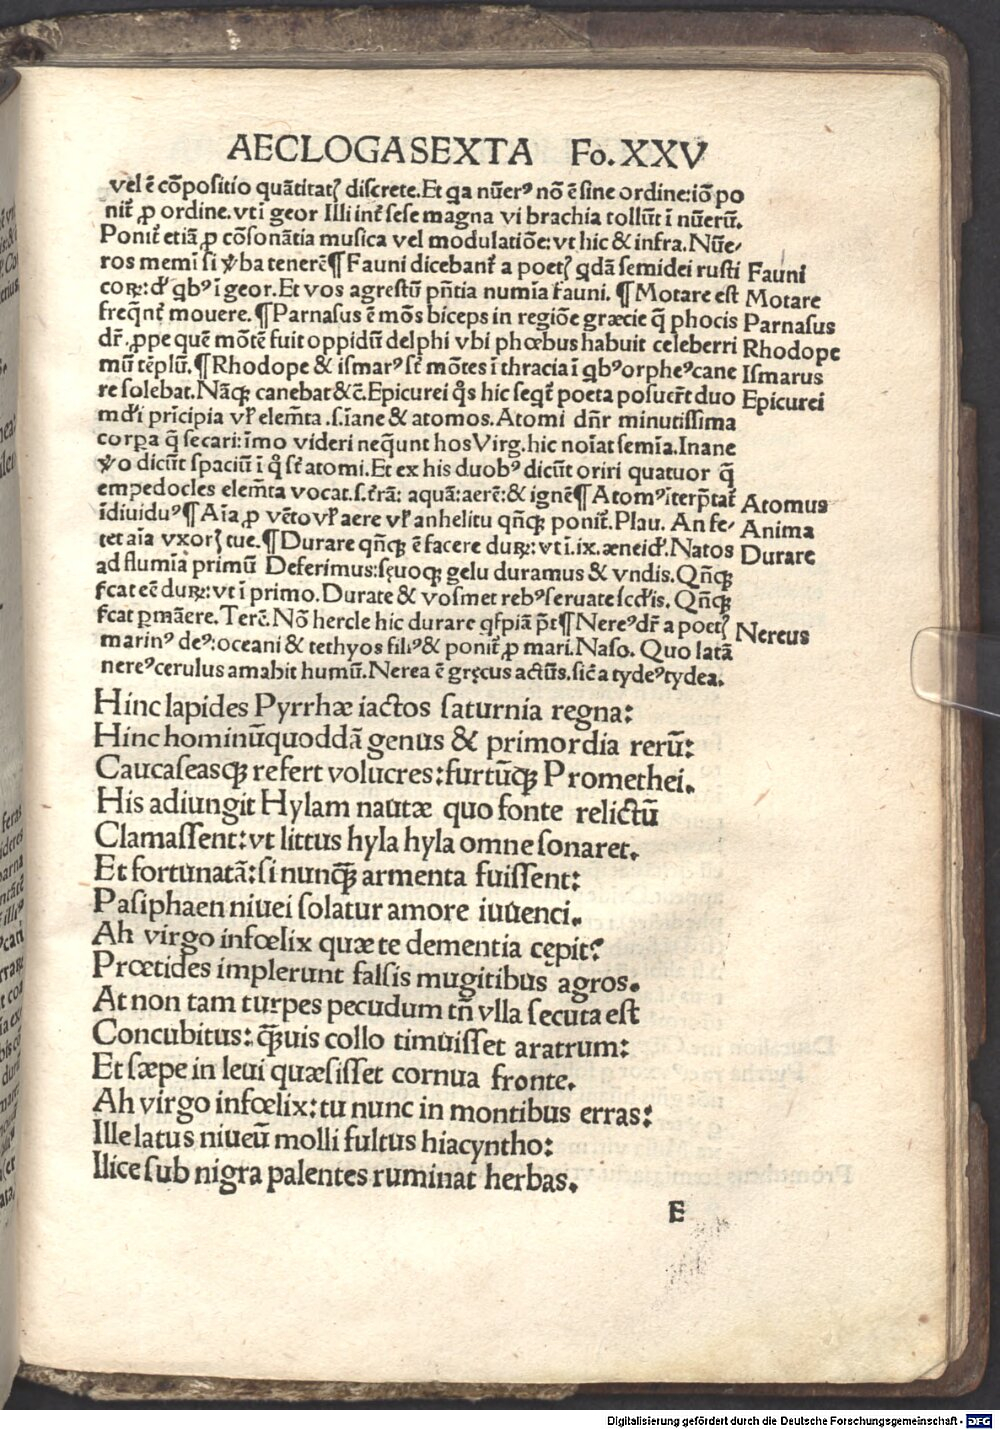 AECLOGA SEXTA Fo. XXV
vel ē cōpositio quātitatꝭ discrete. Et qa nūerꝰ nō ē sine ordine: iō po
nit᷑ ꝓ ordine. vt ī geor Illi int᷑ sese magna vi brachia tollūt ī nūerū.
Ponit᷑ etiā ꝓ cōsonātia musica vel modulatiōe: vt hic & infra. Nūe-
ros memī si v̄ba tenerē ¶ Fauni dicebant᷑ a poetꝭ qdā semidei rusti Fauni
coꝝ: d' qbꝰ ī geor. Et vos agrestū pñtia numīa fauni. ¶ Motare est Motare
freq̄nt᷑ mouere. ¶ Parnasus ē mōs biceps in regiōe græcie q̄ phocis Parnasus
dr̄. ꝓpe quē mōtē fuit oppidū delphi vbi phœbus habuit celeberri Rhodope
mū tēplū. ¶ Rhodope & ismarꝰ st̄ mōtes ī thracia ī qbꝰ orpheꝰ cane Ismarus
re solebat. Nāqꝫ canebat &c̄. Epicurei q̊s hic seqt᷑ poeta posuer̄t duo Epicurei
md'i prīcipia vl' elem̄ta .s. īane & atomos. Atomi dn̄r minutissima
corpa q̄ secari: īmo videri neq̄unt hos Virg. hic noīat semīa. Inane
v̄o dicūt spaciū ī q̊ st̄ atomi. Et ex his duobꝰ dicūt oriri quatuor q̄
empedocles elem̄ta vocat .s. t̄rā: aquā: aerē: & ignē ¶ Atomꝰ īterp̄tat᷑ Atomus
īdiuiduꝰ ¶ Aīa ꝓ vēto vl' aere vl' anhelitu qn̄qꝫ ponit᷑. Plau. An fe- Anima
tet aīa vxorꝭ tue. ¶ Durare qn̄qꝫ ē facere duꝝ: vt .i. ix. æneid'. Natos Durare
ad flumīa primū Deferimus: sęuoqꝫ gelu duramus & vndis. Qn̄qꝫ
fcat eē duꝝ: vt ī primo. Durate & vosmet rebꝰ seruate scd'is. Qn̄qꝫ
fcat ꝑmāere. Terē. Nō hercle hic durare qspiā p̄t ¶ Nereꝰ dr̄ a poetꝭ Nereus
marinꝰ deꝰ: oceani & tethyos filiꝰ & ponit᷑ ꝓ mari. Naso. Quo latā
nereꝰ cerulus amabit humū. Nerea ē gręcus actūs. sic̄ a tydeꝰ tydea.
Hinc lapides Pyrrhæ iactos saturnia regna:
Hinc hominū quoddā genus & primordia rerū:
Caucaseasqꝫ refert volucres: furtūqꝫ Promethei.
His adiungit Hylam nautæ quo fonte relictū
Clamassent: vt littus hyla hyla omne sonaret.
Et fortunatā: si nunꝙ armenta fuissent:
Pasiphaen niuei solatur amore iuuenci.
Ah virgo infœlix quæ te dementia cępit?
Prœtides implerunt falsis mugitibus agros.
At non tam turpes pecudum tn̄ vlla secuta est
Concubitus: ꝙuis collo timuisset aratrum:
Et sæpe in leui quæsisset cornua fronte.
Ah virgo infœlix: tu nunc in montibus erras:
Ille latus niueū molli fultus hiacyntho:
Ilice sub nigra palentes ruminat herbas.
E
Digitalisierung gefördert durch die Deutsche Forschungsgemeinschaft - DFG